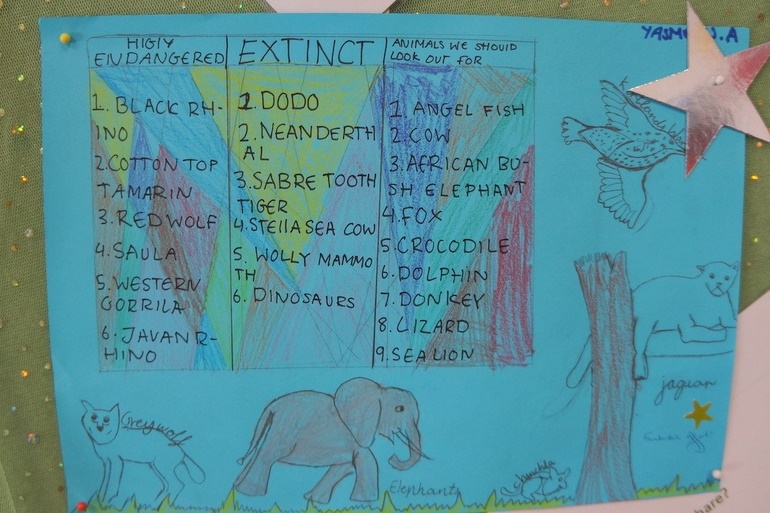 YASMIN.A
HIGLY
ENDANGERED
1. BLACK RH-
INO
2. COTTON TOP
TAMARIN
3. RED WOLF
4. SAULA
5. WESTERN
GORRILA
6. JAVAN R-
HINO
EXTINCT
1. DODO
2. NEANDERTH
AL
3. SABRE TOOTH
TIGER
4. Stella SEA COW
5. WOLLY MAMMO
TH
6. DINOSAURS
ANIMALS WE SHOULD
LOOK OUT FOR
1. ANGEL FISH
2. COW
3. AFRICAN BU-
SH ELEPHANT
4. FOX
5. CROCODILE
6. DOLPHIN
7. DONKEY
8. LIZARD
9. SEA LION
jaguar
Grey wolf
Elephant
hare?